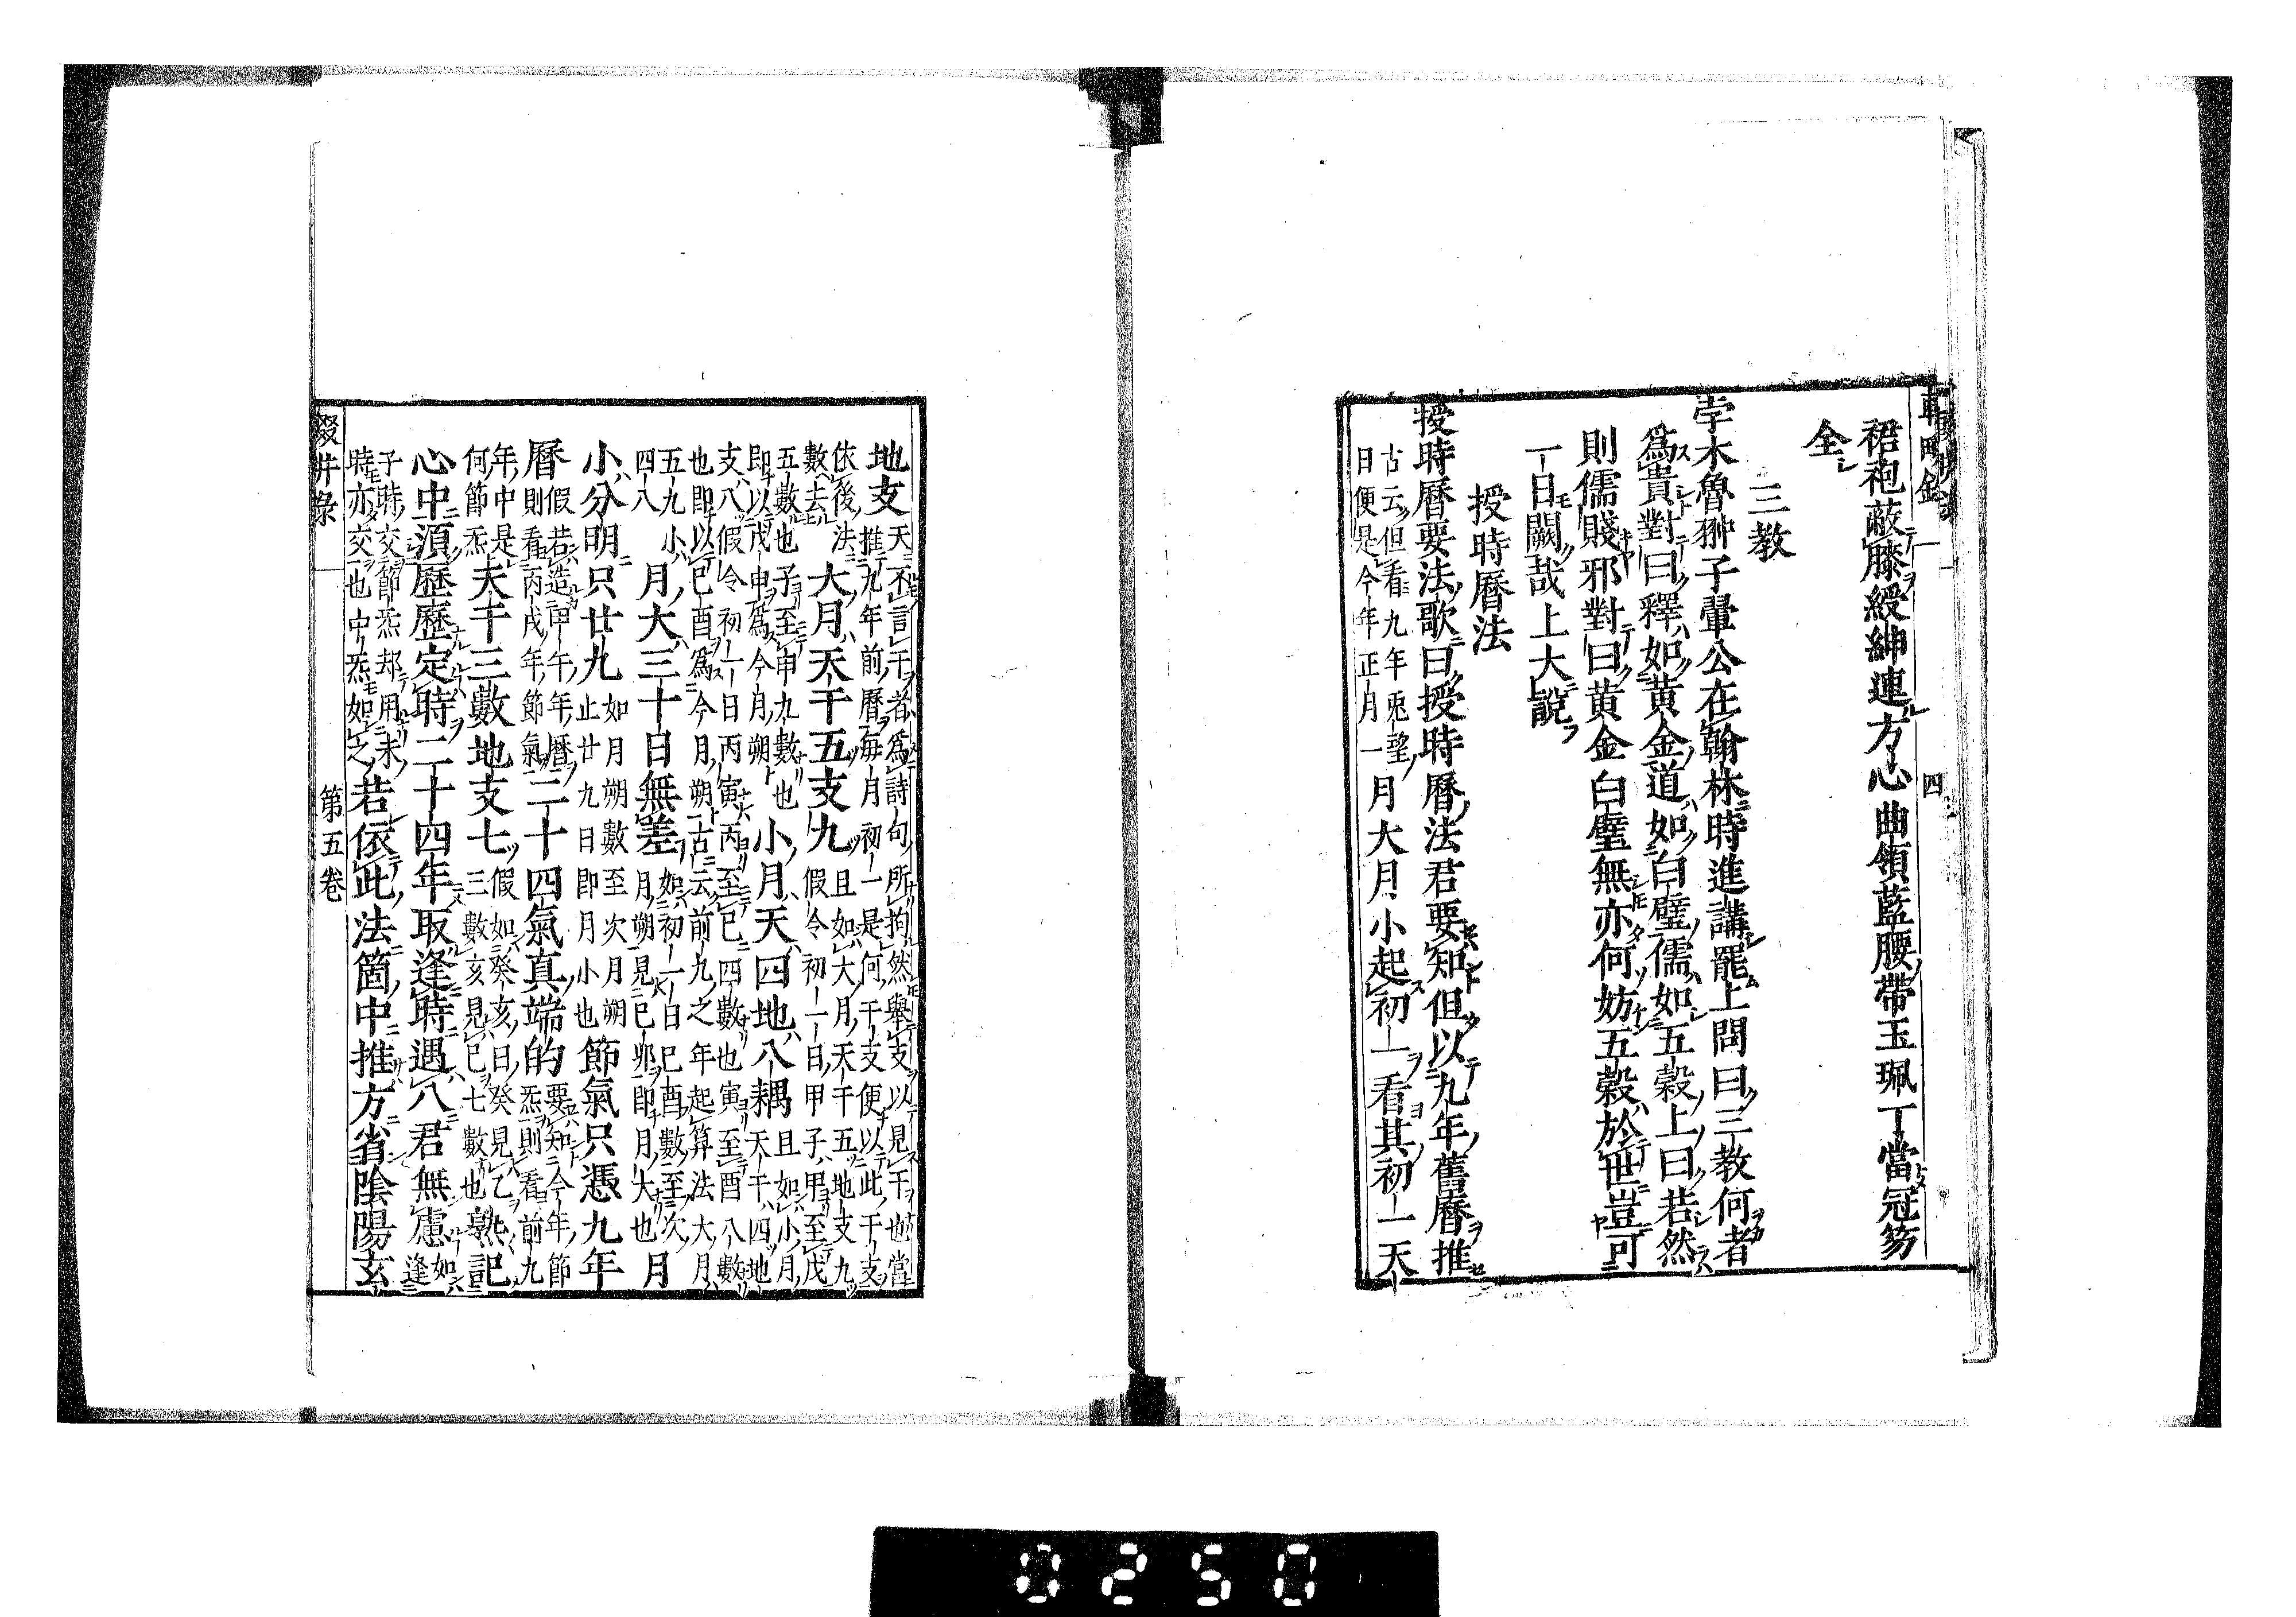 裙袍蔽膝綬紳連方心曲領藍腰帶玉珮丁當冠笏
全
三教
孛木魯翀子翬公在翰林時進講罷上問曰三教何者
爲貴對曰釋如黃金道如白璧儒如五穀上曰若然
則儒賤邪對曰黃金白璧無亦何妨五穀於世豈可
一日闕哉上大說
授時曆法
授時曆要法歌曰授時曆法君要知但以九年舊曆推
古云但看九年兎望日便是今年正月一月大月小起初一看其初一天
地支天不言干者爲詩句所拘然舉支以見干也當推九年前曆每月初一是何干支便以此干支
依後法數去大月天干五支九且如大月天干五地支九假令初一日甲子甲至戊
五數也子至申九數也即以戊申爲今月朔小月天四地八耦且如小月天干四地
支八假令初一日丙寅丙至巳四數也寅至酉八數也即以巳酉爲今月朔古云前九之年起算法大月
五九小四八月大三十日無差如初一日巳酉數至次月朔見巳卯即月大也月
小分明只廿九如月朔數至次月朔止廿九日即月小也節氣只憑九年
曆假若造甲午年曆則看丙戌年節氣二十四氣真端的要知今年節炁則看前九
年中是何節炁天干三數地支七假如癸亥日癸見乙三數亥見巳七數也熟記
心中須歷歷定時二十四年取逢時遇八君無慮如逢
子時交節炁却用未時亦交也中炁如之若依此法箇中推方省陰陽玄
第五卷
0250